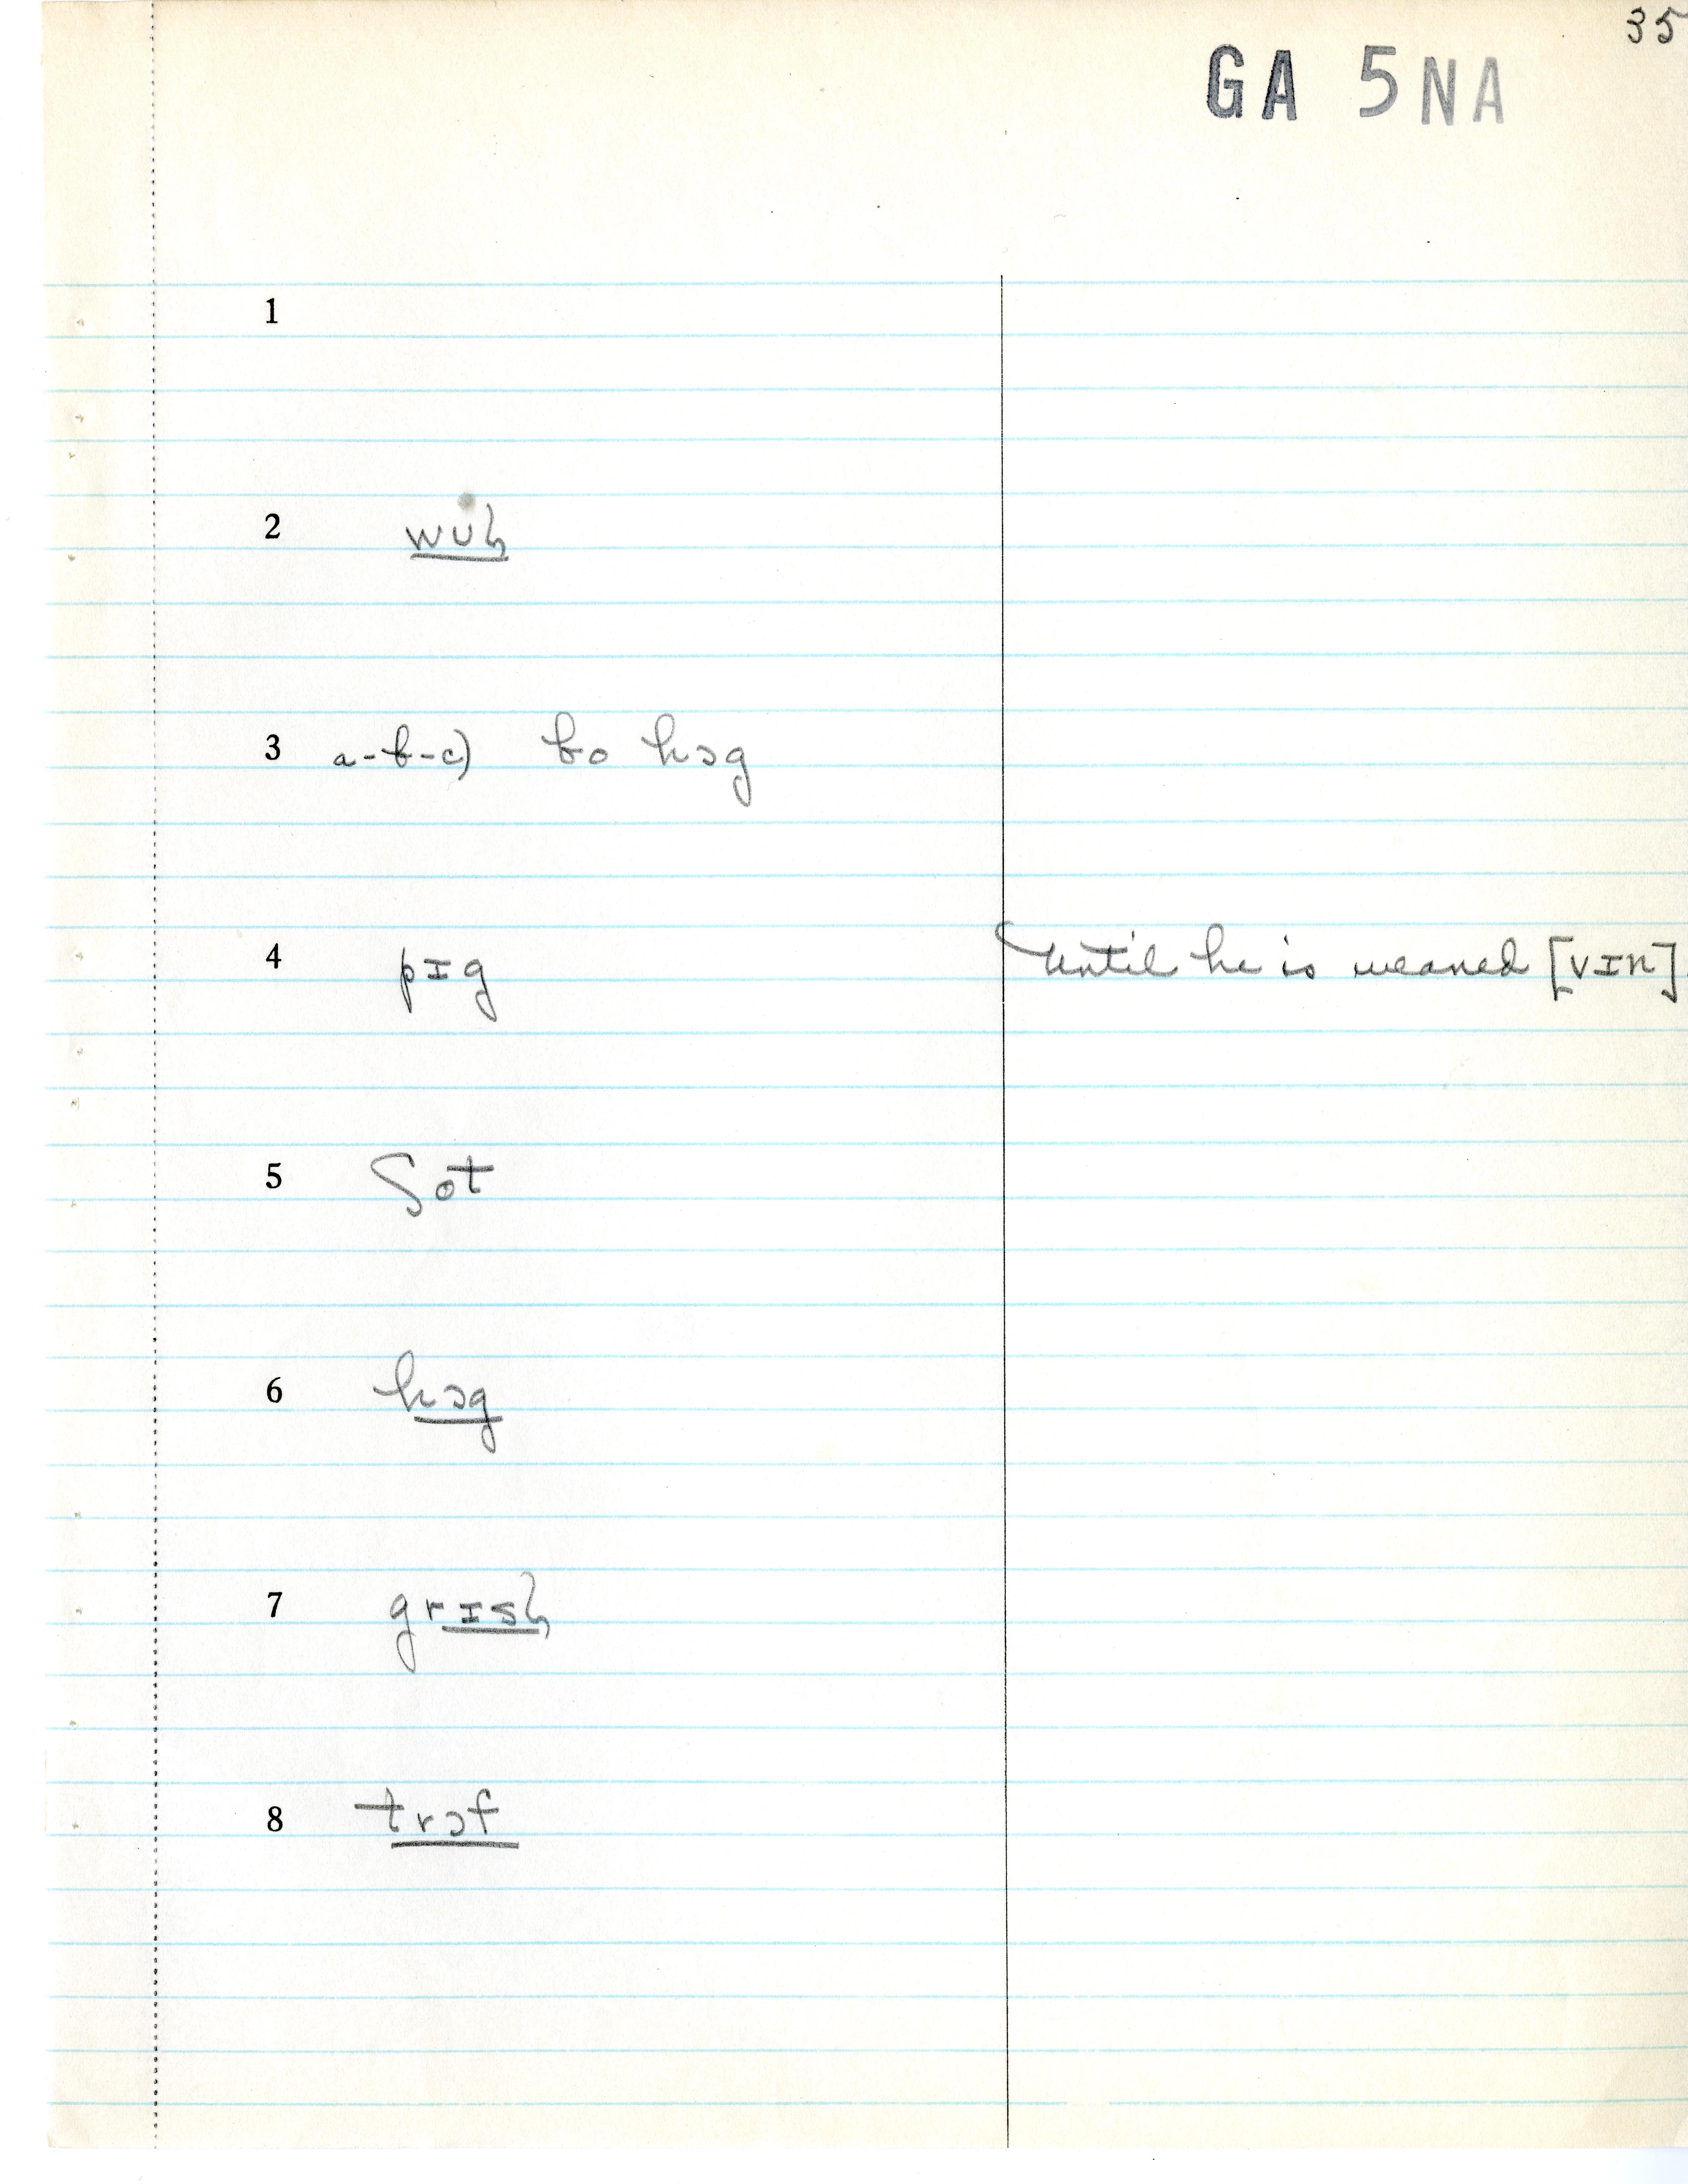 35
GA 5NA
1
2 wʊɫ
3 a-b-c) bo hɔg
4 pɪg Until he is weaned [vɪn]
5 ʃot
6 hɔg
7 grɪsɫ
8 trɔf